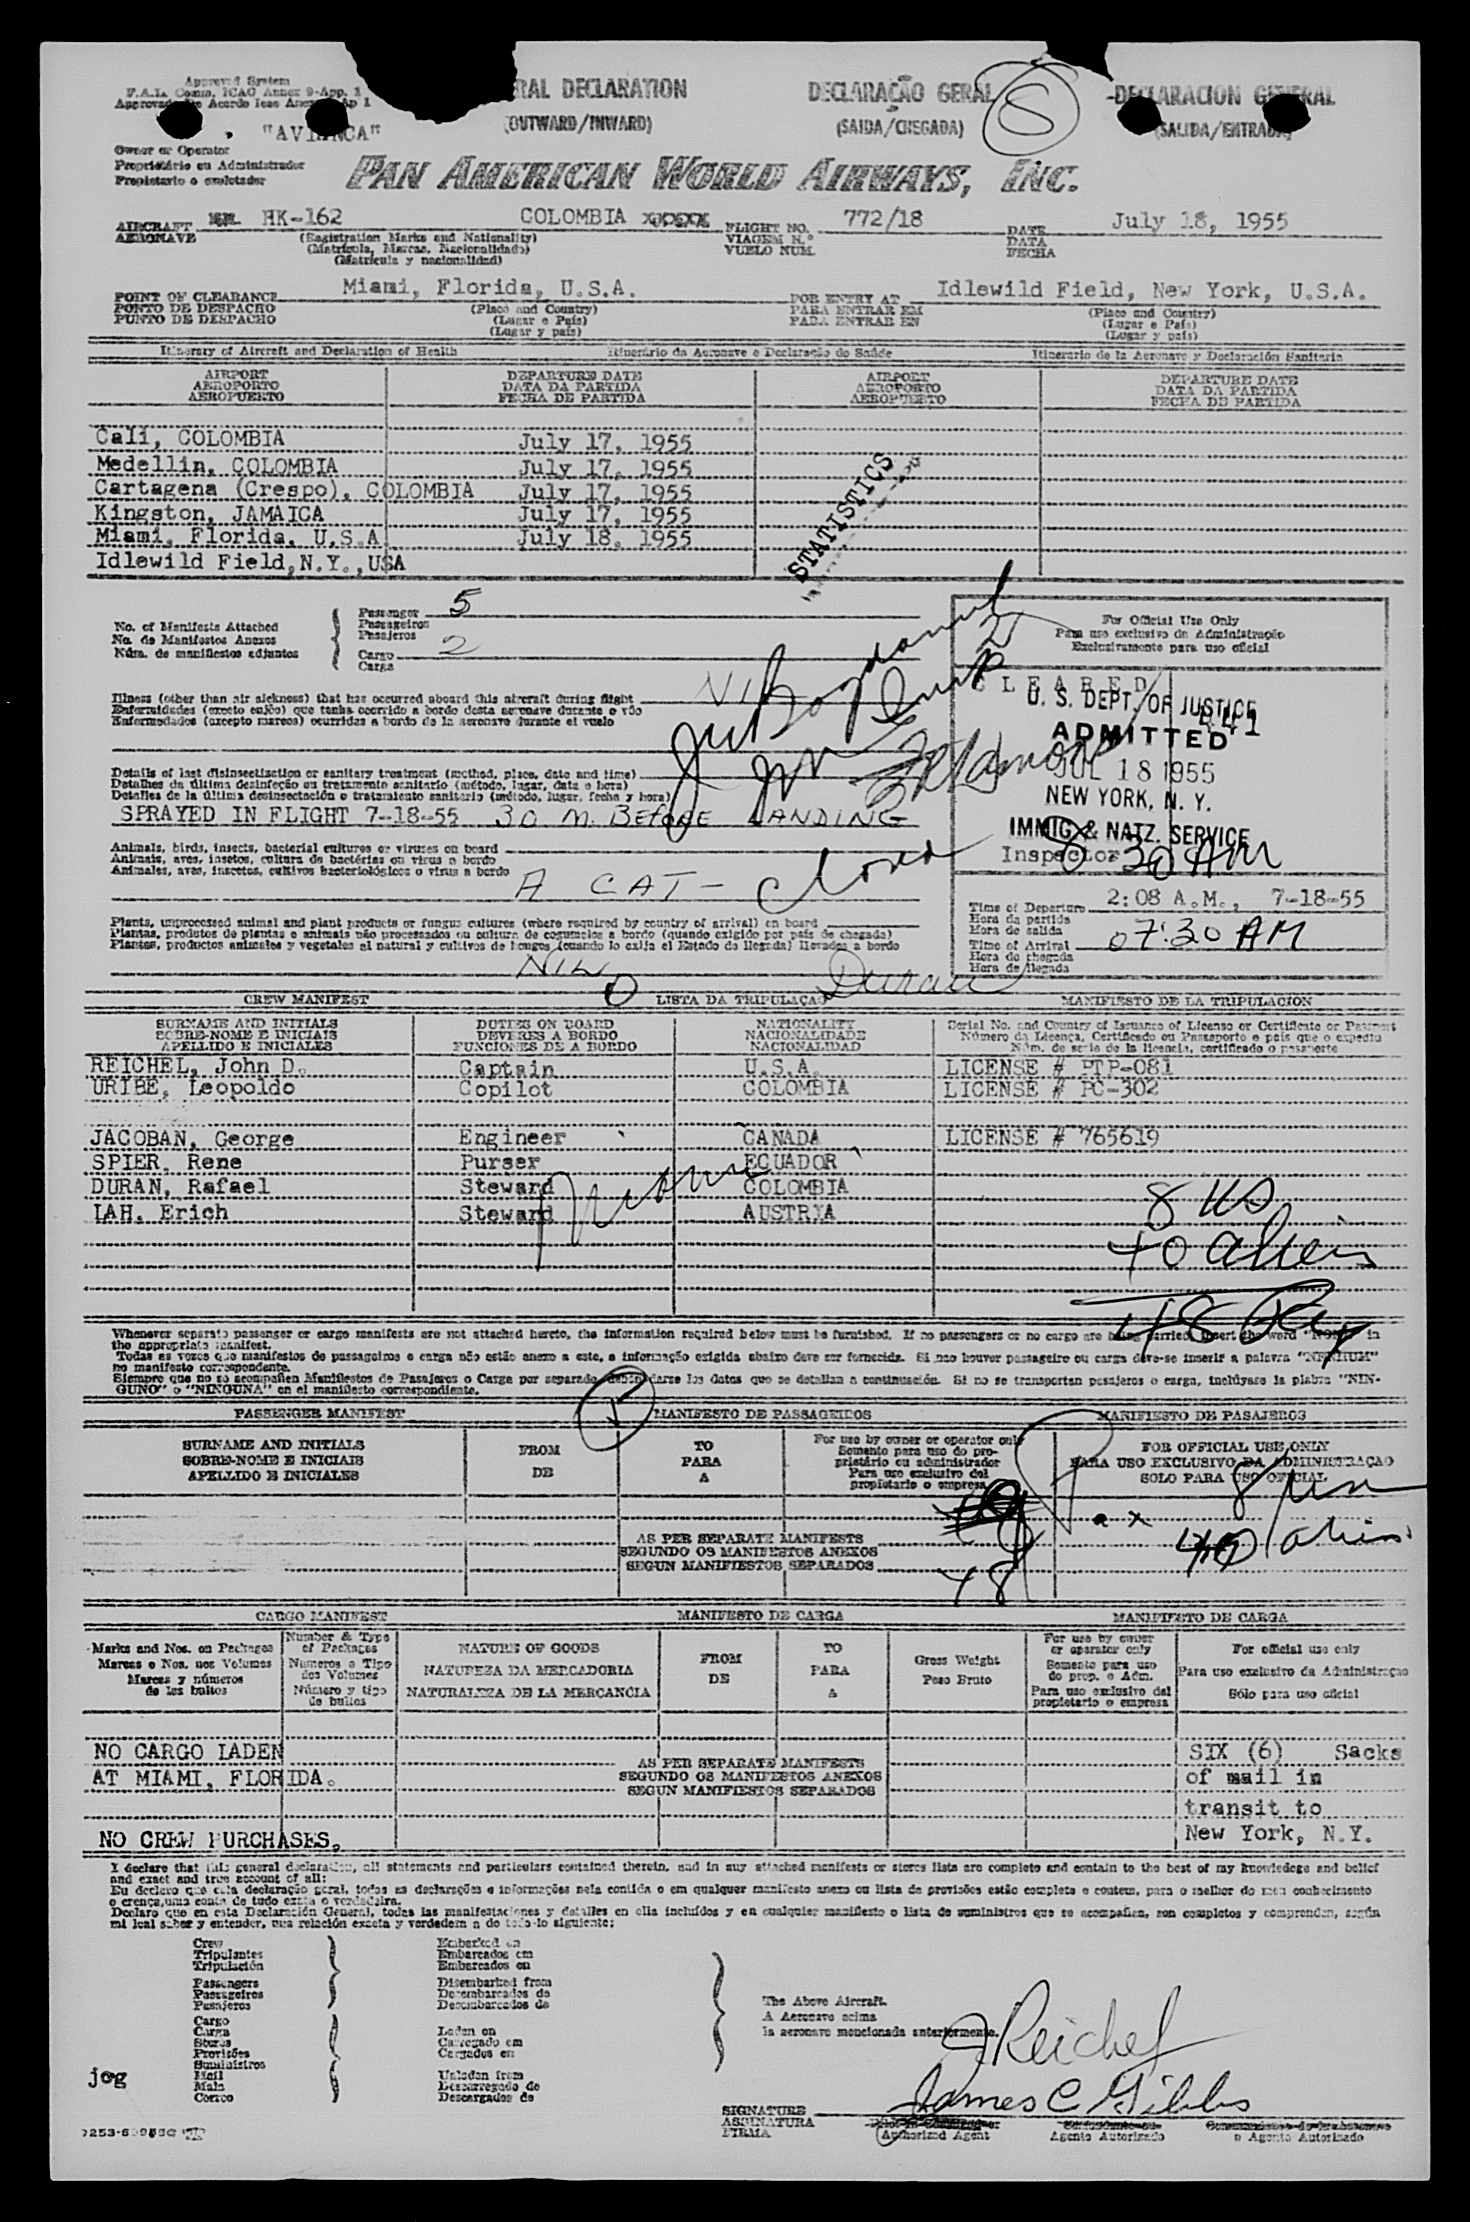 Approved System
F.A.L. Comm. ICAO Annex 9-App. 1
"AVIANCA"
GENERAL DECLARATION
(OUTWARD/INWARD)
DECLARAÇÃO GERAL
(SAIDA/CHEGADA)
S
DECLARACION GENERAL
(SALIDA/ENTRADA)
Owner or Operator
Proprietário ou Administrador
Propietario o explotador
PAN AMERICAN WORLD AIRWAYS, INC.
AIRCRAFT HK-162 COLOMBIA
AERONAVE
(Registration Marks and Nationality)
(Matrícula, Marcas, Nacionalidade)
(Matrícula y nacionalidad)
FLIGHT NO. 772/18
VIAGEM N.º
VUELO NUM.
DATE July 18, 1955
DATA
FECHA
POINT OF CLEARANCE Miami, Florida, U.S.A.
PONTO DE DESPACHO
PUNTO DE DESPACHO
(Place and Country)
(Lugar e País)
(Lugar y país)
FOR ENTRY AT Idlewild Field, New York, U.S.A.
PARA ENTRAR EM
PARA ENTRAR EN
(Place and Country)
(Lugar e País)
(Lugar y país)
Itinerary of Aircraft and Declaration of Health
Itinerário da Aeronave e Declaração de Saúde
Itinerario de la Aeronave y Declaración Sanitaria
AIRPORT
AEROPORTO
AEROPUERTO
DEPARTURE DATE
DATA DA PARTIDA
FECHA DE PARTIDA
AIRPORT
AEROPORTO
AEROPUERTO
DEPARTURE DATE
DATA DA PARTIDA
FECHA DE PARTIDA
Cali, COLOMBIA July 17, 1955
Medellin, COLOMBIA July 17, 1955
Cartagena (Crespo), COLOMBIA July 17, 1955
Kingston, JAMAICA July 17, 1955
Miami, Florida, U.S.A. July 18, 1955
Idlewild Field,N.Y.,USA
STATISTICS
No. of Manifests Attached
No. de Manifestos Anexos
Núm. de manifiestos adjuntos
Passenger 5
Passageiros
Pasajeros
Cargo 2
Carga
For Official Use Only
Para uso exclusivo da Administração
Exclusivamente para uso oficial
CLEARED
U. S. DEPT. OF JUSTICE
441
ADMITTED
JUL 18 1955
NEW YORK, N. Y.
IMMIG. & NATZ. SERVICE
Inspector
8 30 AM
Illness (other than air sickness) that has occurred aboard this aircraft during flight NIL
Enfermidades (exceto enjôo) que tenha ocorrido a bordo desta aeronave durante o vôo
Enfermedades (excepto mareos) ocurridas a bordo de la aeronave durante el vuelo
Details of last disinsectization or sanitary treatment (method, place, date and time)
Detalhes da última desinfeção ou tratamento sanitario (método, lugar, data e hora)
Detalles de la última desinsectación o tratamiento sanitario (método, lugar, fecha y hora)
SPRAYED IN FLIGHT 7-18-55 30 M. BEFORE LANDING
Animals, birds, insects, bacterial cultures or viruses on board
Animais, aves, insetos, cultura de bactérias ou virus a bordo
Animales, aves, insectos, cultivos bacteriológicos o virus a bordo
A CAT-
Time of Departure 2:08 A.M., 7-18-55
Hora da partida
Hora de salida
Time of Arrival 07:30 AM
Hora da chegada
Hora de llegada
Plants, unprocessed animal and plant products or fungus cultures (where required by country of arrival) on board
Plantas, produtos de plantas e animais não processados ou cultura de cogumelos a bordo (quando exigido por país de chegada)
Plantas, productos animales y vegetales al natural y cultivos de hongos (cuando lo exija el Estado de llegada) llevados a bordo
NIL
Duran
CREW MANIFEST LISTA DA TRIPULAÇÃO MANIFIESTO DE LA TRIPULACION
SURNAME AND INITIALS
SOBRE-NOME E INICIAIS
APELLIDO E INICIALES
DUTIES ON BOARD
DEVERES A BORDO
FUNCIONES DE A BORDO
NATIONALITY
NACIONALIDADE
NACIONALIDAD
Serial No. and Country of Issuance of License or Certificate or Passport
Número da Licença, Certificado ou Passaporte e país que o expediu
Núm. de serie de la licencia, certificado o pasaporte
REICHEL, John D. Captain U.S.A. LICENSE # PTP-081
URIBE, Leopoldo Copilot COLOMBIA LICENSE # PC-302
JACOBAN, George Engineer CANADA LICENSE # 765619
SPIER, Rene Purser ECUADOR
DURAN, Rafael Steward COLOMBIA
LAH, Erich Steward AUSTRIA
Miami
8 US
40 aliens
48 Pax
Whenever separate passenger or cargo manifests are not attached hereto, the information required below must be furnished. If no passengers or no cargo are being carried, insert the word "NONE" in
the appropriate manifest.
Todas as vezes que manifestos de passageiros e carga não estão anexo a este, a informação exigida abaixo deve ser fornecida. Si nao houver passageiro ou carga deve-se inserir a palavra "NENHUM"
no manifesto correspondente.
Siempre que no se acompañen Manifiestos de Pasajeros o Carga por separado, deberán darse los datos que se detallan a continuación. Si no se transportan pasajeros o carga, inclúyase la plabra "NIN-
GUNO" o "NINGUNA" en el manifiesto correspondiente.
PASSENGER MANIFEST MANIFESTO DE PASSAGEIROS MANIFIESTO DE PASAJEROS
SURNAME AND INITIALS
SOBRE-NOME E INICIAIS
APELLIDO E INICIALES
FROM
DE
TO
PARA
A
For use by owner or operator only
Somente para uso do pro-
prietário ou administrador
Para uso exclusivo del
propietario o empresa
FOR OFFICIAL USE ONLY
PARA USO EXCLUSIVO DA ADMINISTRAÇAO
SOLO PARA USO OFICIAL
AS PER SEPARATE MANIFESTS
SEGUNDO OS MANIFESTOS ANEXOS
SEGUN MANIFIESTOS SEPARADOS
48
CARGO MANIFEST MANIFESTO DE CARGA MANIFIESTO DE CARGA
Marks and Nos. on Packages
Marcas e Nos. nos Volumes
Marcas y números
de los bultos
Number & Type
of Packages
Numeros e Tipo
dos Volumes
Número y tipo
de bultos
NATURE OF GOODS
NATUREZA DA MERCADORIA
NATURALEZA DE LA MERCANCIA
FROM
DE
TO
PARA
A
Gross Weight
Peso Bruto
For use by owner
or operator only
Somente para uso
do prop. e Adm.
Para uso exclusivo del
propietario o empresa
For official use only
Para uso exclusivo da Administraçao
Sólo para uso oficial
NO CARGO LADEN
AT MIAMI, FLORIDA.
AS PER SEPARATE MANIFESTS
SEGUNDO OS MANIFESTOS ANEXOS
SEGUN MANIFIESTOS SEPARADOS
SIX (6) Sacks
of mail in
transit to
New York, N.Y.
NO CREW PURCHASES.
I declare that this general declaration, all statements and particulars contained therein, and in any attached manifests or stores lists are complete and contain to the best of my knowledge and belief
and exact and true account of all:
Eu declaro que esta declaração geral, todos as declarações e informações nela contida o em qualquer manifesto anexo ou lista de provisões estão completa e contem, para o melhor do meu conhecimento
e crença, uma conta de tudo exata o verdadeira.
Declaro que en esta Declaración General, todas las manifestaciones y detalles en ella incluídos y en cualquier manifiesto o lista de suministros que se acompañan, son completos y comprenden, según
mi leal saber y entender, una relación exacta y verdadera a de todo lo siguiente:
Crew
Tripulantes
Tripulación
Passengers
Passageiros
Pasajeros
Cargo
Carga
Stores
Provisões
Suministros
Mail
Mala
Correo
Embarked on
Embarcados em
Embarcados en
Disembarked from
Desembarcados de
Desembarcados de
Laden on
Carregado em
Cargados en
Unladen from
Descarregado de
Descargados de
The Above Aircraft.
A Aeronave acima
la aeronave mencionada anteriormente.
J Reichel
James C Gibbs
jog
SIGNATURE
ASSINATURA
FIRMA
Authorized Agent
Agente Autorizado
o Agente Autorizado